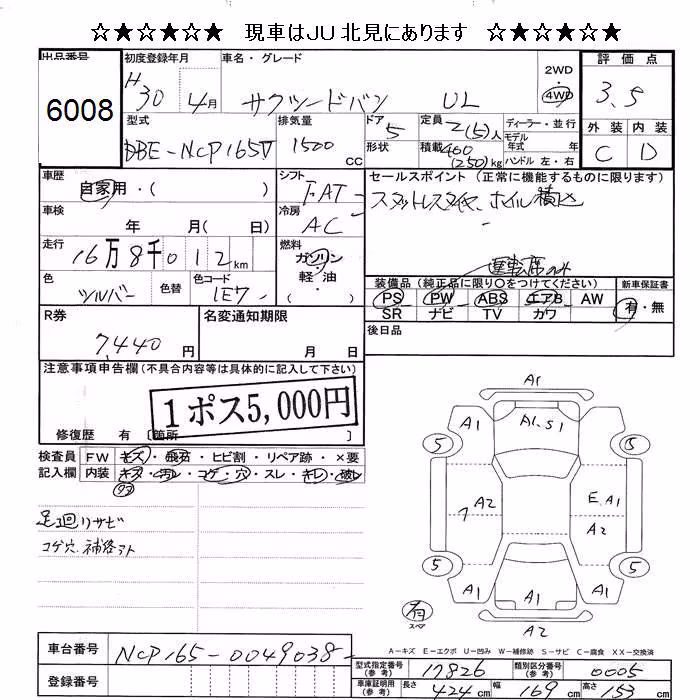 ☆★☆★☆★ 現車はＪＵ北見にあります ☆★☆★☆★
出品番号 初度登録年月 車名・グレード 評価点
6008
H30 4月 サクシードバン UL 2WD 4WD 3.5
型式 排気量 ドア 定員 ディーラー・並行 外装 内装
DBE-NCP165V 1500 CC 5 2(5)人 モデル年式 年
形状 積載 460(250)kg ハンドル 左・右 C D
車歴 シフト セールスポイント (正常に機能するものに限ります)
自家用・( ) F.AT
スタットレスタイヤ、ホイル積込
車検 冷房
年 月 ( 日) AC
走行 燃料
16万8千012km ガソリン・軽油・( )
運転席のみ
色 色替 色コード 装備品 (純正品に限り○をつけてください) 新車保証書
シルバー 1E7 PS PW ABS エアB AW 有・無
SR ナビ TV カワ
R券 名変通知期限 後日品
7,440円 月 日
注意事項申告欄(不具合内容等は具体的に記入して下さい)
1ポス5,000円
修復歴 有 〔箇所 〕
検査員記入欄 FW キズ・飛石・ヒビ割・リペア跡・×要
内装 キズ・汚レ・コゲ・穴・スレ・キレ・破レ
足廻リサビ
コゲ穴、補修アト
A1
A1 A1.S1 A1
5 5
A2 E.A1
7 A2
5 5
A1 A1 A1
有
スペア
A2
A－キズ E－エクボ U－凹み W－補修跡 S－サビ C－腐食 XX－交換済
車台番号 NCP165-0049038-
登録番号
型式指定番号(参考) 17826 類別区分番号(参考) 0005
車庫証明用(参考) 長さ 424cm 幅 169cm 高さ 153cm